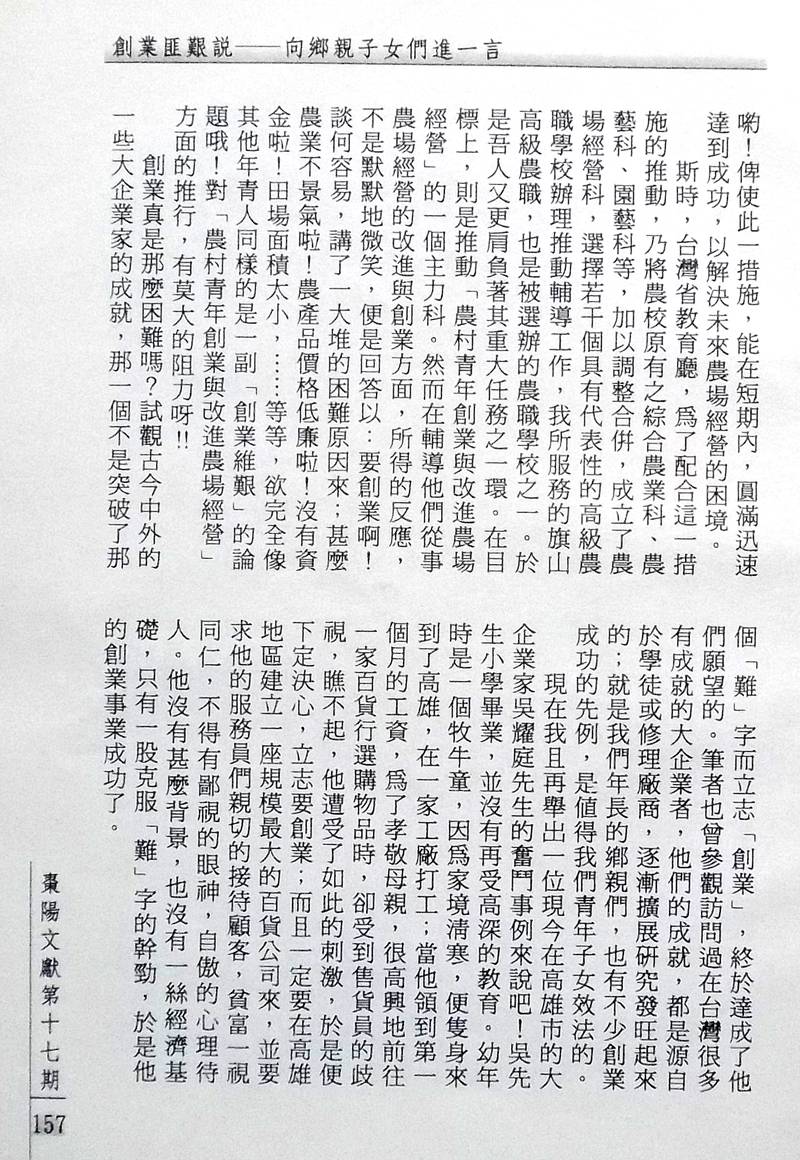 創業匪艱説——向鄉親子女們進一言
喲！俾使此一措施，能在短期內，圓滿迅速
達到成功，以解決未來農場經營的困境。
斯時，台灣省教育廳，爲了配合這一措
施的推動，乃將農校原有之綜合農業科、農
藝科、園藝科等，加以調整合併，成立了農
場經營科，選擇若干個具有代表性的高級農
職學校辦理推動輔導工作，我所服務的旗山
高級農職，也是被選辦的農職學校之一。於
是吾人又更肩負著其重大任務之一環。在目
標上，則是推動「農村青年創業與改進農場
經營」的一個主力科。然而在輔導他們從事
農場經營的改進與創業方面，所得的反應，
不是默默地微笑，便是回答以：要創業啊！
談何容易，講了一大堆的困難原因來；甚麼
農業不景氣啦！農產品價格低廉啦！沒有資
金啦！田場面積太小，……等等，欲完全像
其他年青人同樣的是一副「創業維艱」的論
題哦！對「農村青年創業與改進農場經營」
方面的推行，有莫大的阻力呀!!
創業真是那麼困難嗎？試觀古今中外的
一些大企業家的成就，那一個不是突破了那
個「難」字而立志「創業」，終於達成了他
們願望的。筆者也曾參觀訪問過在台灣很多
有成就的大企業者，他們的成就，都是源自
於學徒或修理廠商，逐漸擴展研究發旺起來
的；就是我們年長的鄉親們，也有不少創業
成功的先例，是值得我們青年子女效法的。
現在我且再舉出一位現今在高雄市的大
企業家吳耀庭先生的奮鬥事例來說吧！吳先
生小學畢業，並沒有再受高深的教育。幼年
時是一個牧牛童，因爲家境清寒，便隻身來
到了高雄，在一家工廠打工；當他領到第一
個月的工資，爲了孝敬母親，很高興地前往
一家百貨行選購物品時，卻受到售貨員的歧
視，瞧不起，他遭受了如此的刺激，於是便
下定決心，立志要創業；而且一定要在高雄
地區建立一座規模最大的百貨公司來，並要
求他的服務員們親切的接待顧客，貧富一視
同仁，不得有鄙視的眼神，自傲的心理待
人。他沒有甚麼背景，也沒有一絲經濟基
礎，只有一股克服「難」字的幹勁，於是他
的創業事業成功了。
棗陽文獻第十七期
157